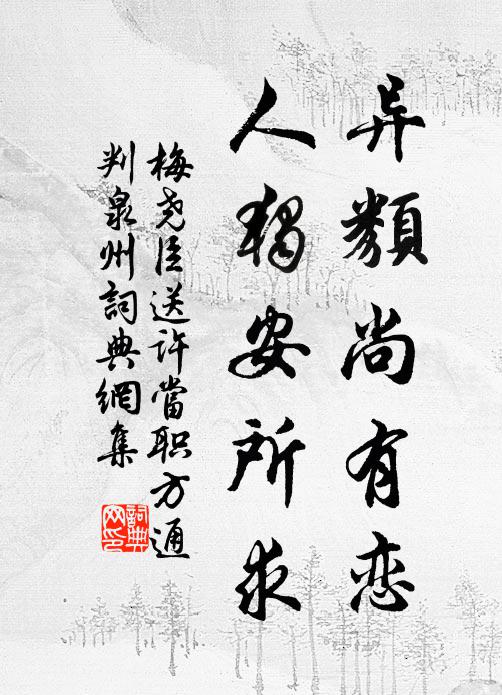 异類尚有恋
人独安所求
梅尧臣送许當职方通
判泉州詞典網集
詞典
网印